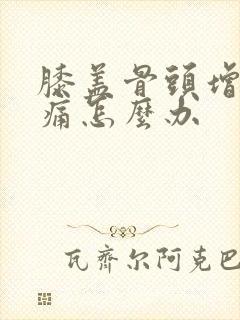 膝盖骨頭增
痛怎麼办
瓦齊尔阿克巴